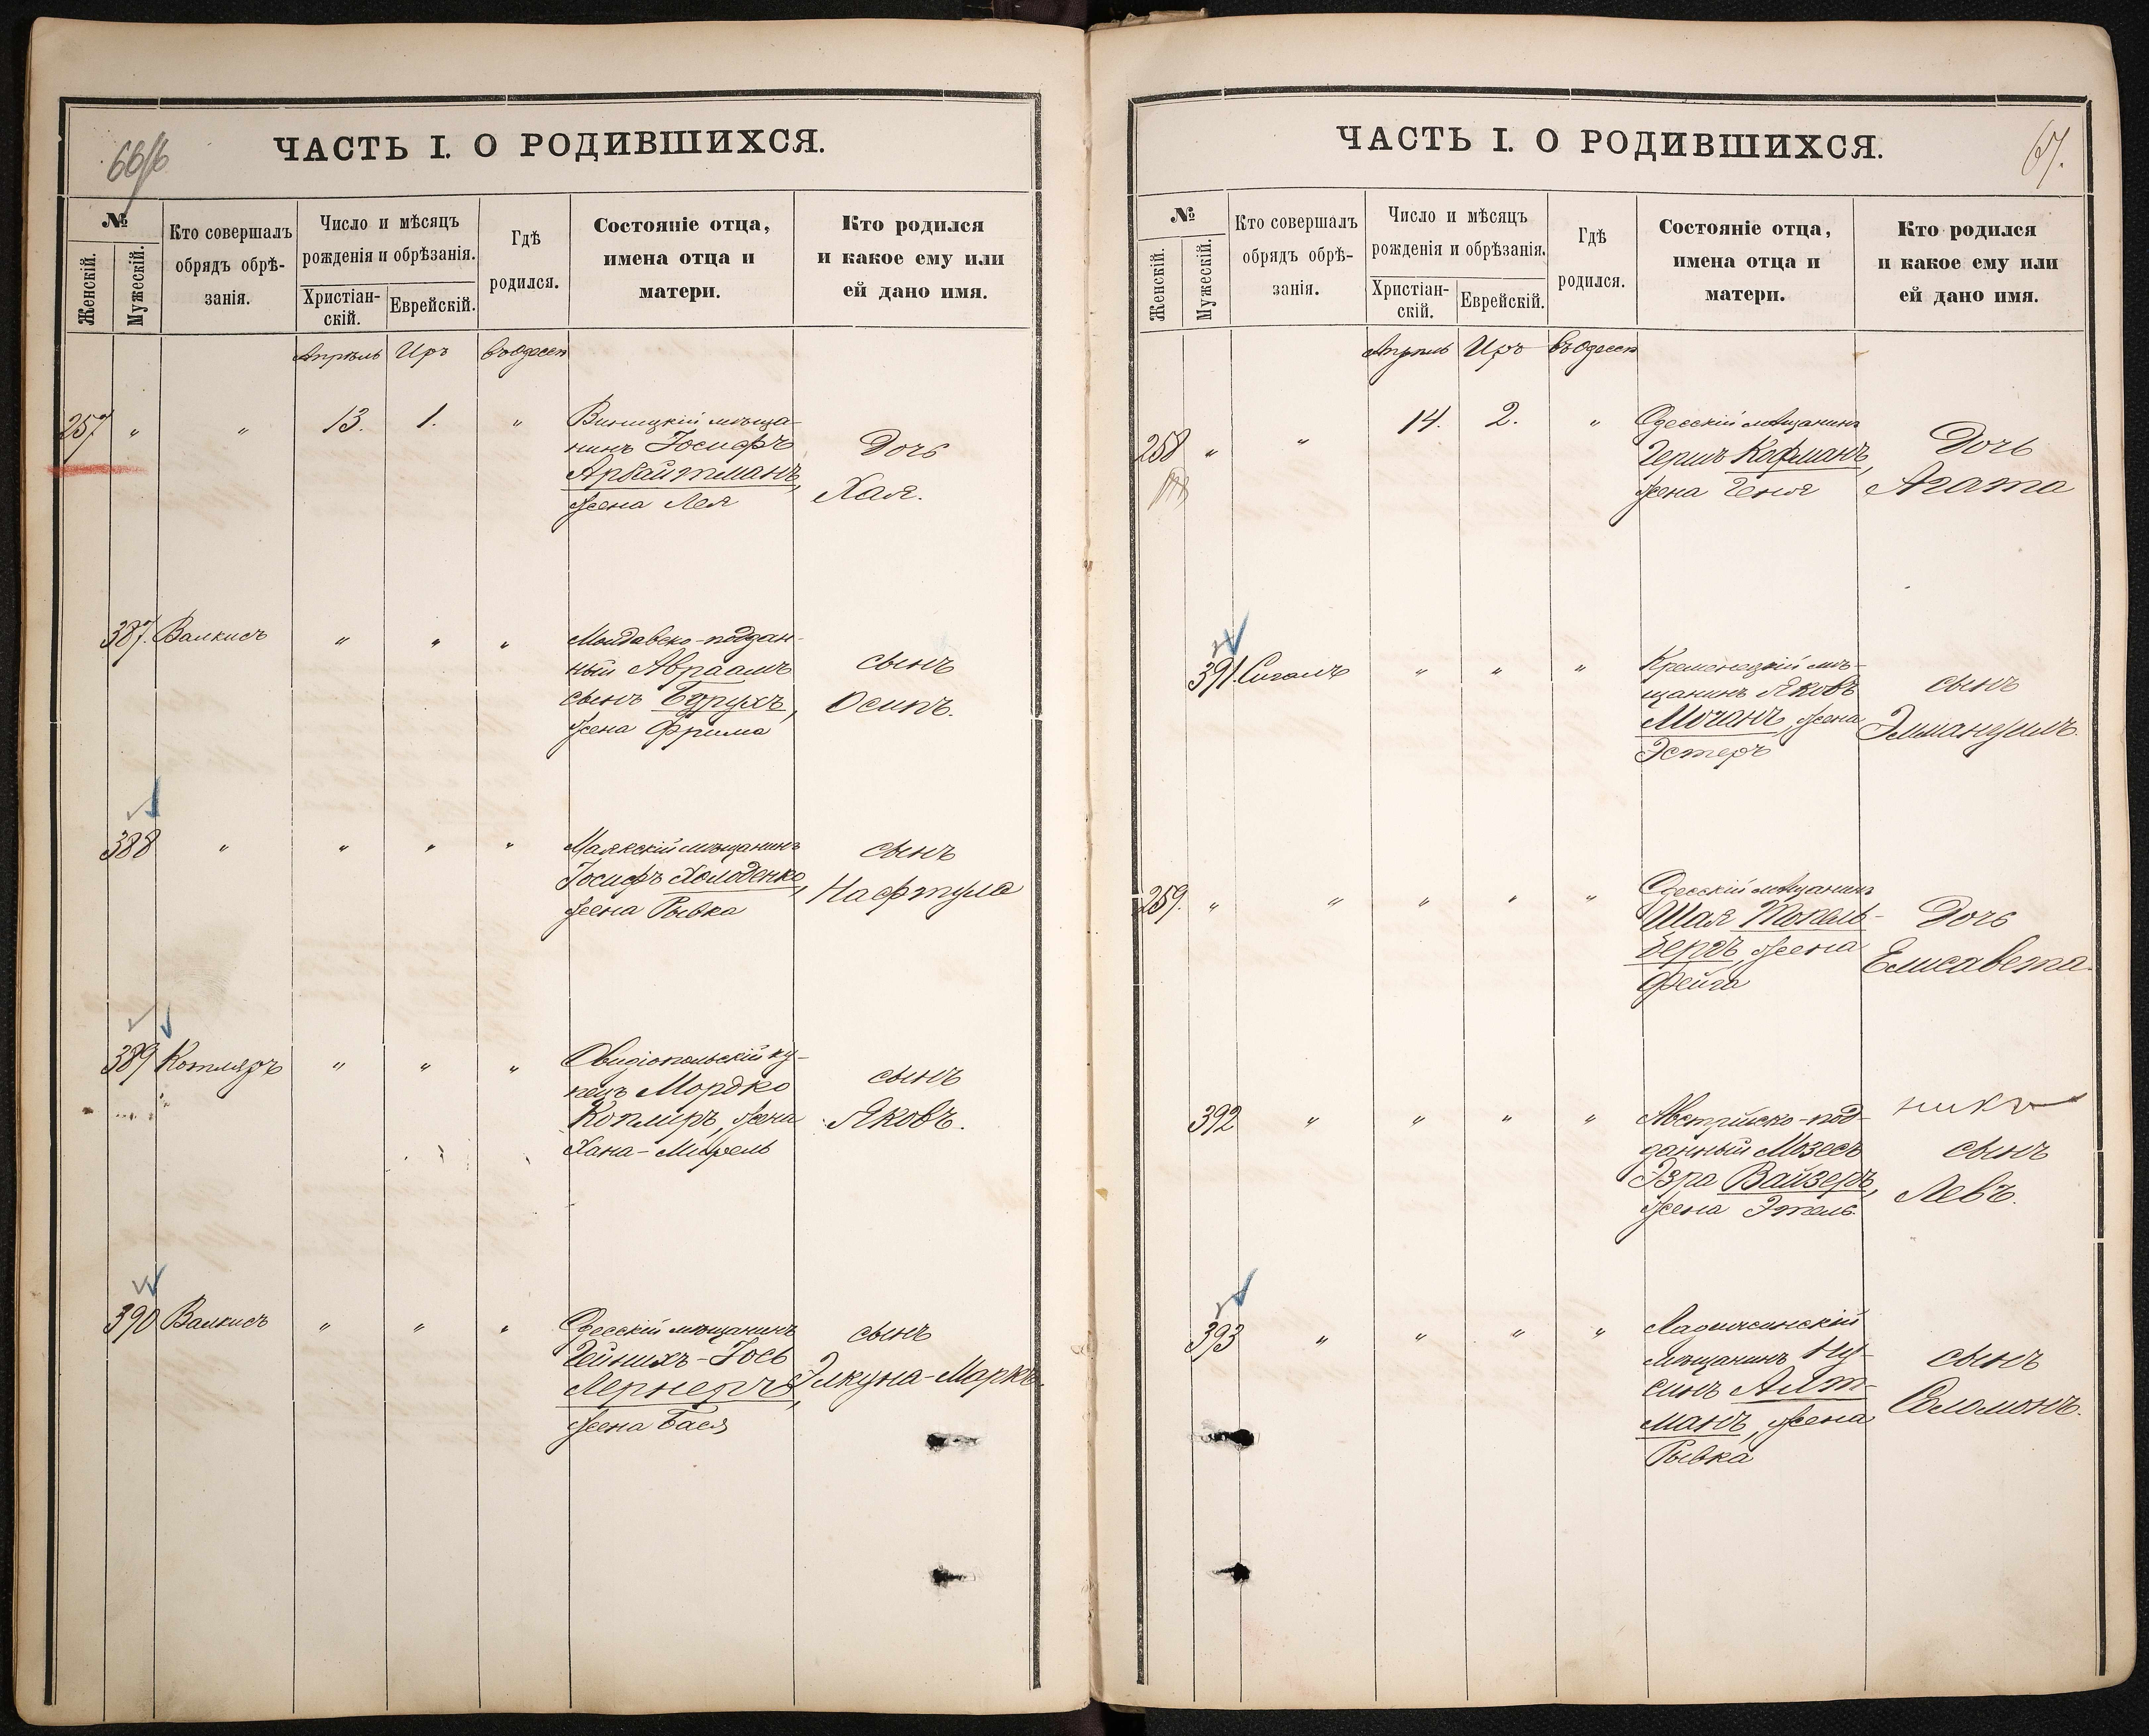 66
ЧАСТЬ I. О РОДИВШИХСЯ.
№
Женскій.
Мужескій.
Кто совершалъ
обрядъ обрѣ-
занія.
Число и мѣсяцъ
рожденія и обрѣзанія.
Христіан-
скій.
Еврейскій.
Гдѣ
родился.
Состояніе отца,
имена отца и
матери.
Кто родился
и какое ему или
ей дано имя.
Апрѣль Иръ въ Одессѣ
257 " " 13. 1. " Виницкій мѣща-
нинъ Іосифъ
Арбайтманъ,
жена Лея
Дочь
Хая.
387. Валкисъ " " " Молдавско-поддан-
ный Авраамъ
сынъ Борухъ,
жена Фрима
сынъ
Осипъ.
388 " " " " Маякскій мѣщанинъ
Іосифъ Холоденко,
жена Рывка
сынъ
Нафтула
389 Котляръ " " " Овидіопольскій ку-
пецъ Мордко
Копліръ, жена
Хана-Мирель
сынъ
Яковъ.
390 Валкисъ " " " Одесскій мѣщанинъ
Гейнихъ-Іось
Лернеръ,
жена Бася
сынъ
Элкуна-Маркъ.
67.
ЧАСТЬ I. О РОДИВШИХСЯ.
№
Женскій.
Мужескій.
Кто совершалъ
обрядъ обрѣ-
занія.
Число и мѣсяцъ
рожденія и обрѣзанія.
Христіан-
скій.
Еврейскій.
Гдѣ
родился.
Состояніе отца,
имена отца и
матери.
Кто родился
и какое ему или
ей дано имя.
Апрѣль Иръ въ Одессѣ
258 " " 14. 2. " Одесскій мѣщанинъ
Гершъ Кофманъ,
жена Геня
Дочь
Агата
391. Сигалъ " " " Кременецкій мѣ-
щанинъ Яковъ
Мочанъ, жена
Эстеръ
сынъ
Эммануилъ.
259. " " " " " Одесскій мѣщанинъ
Шая Токель-
бергъ, жена
Фейга
Дочь
Елисавета.
392 " " " " Австрійско-под-
данный Мозесъ
Эзра Вайзеръ,
жена Этель.
сынъ
Левъ.
393 " " " " Ладыжинскій
мѣщанинъ Ну-
синъ Алт-
манъ, жена
Рывка
сынъ
Соломонъ.